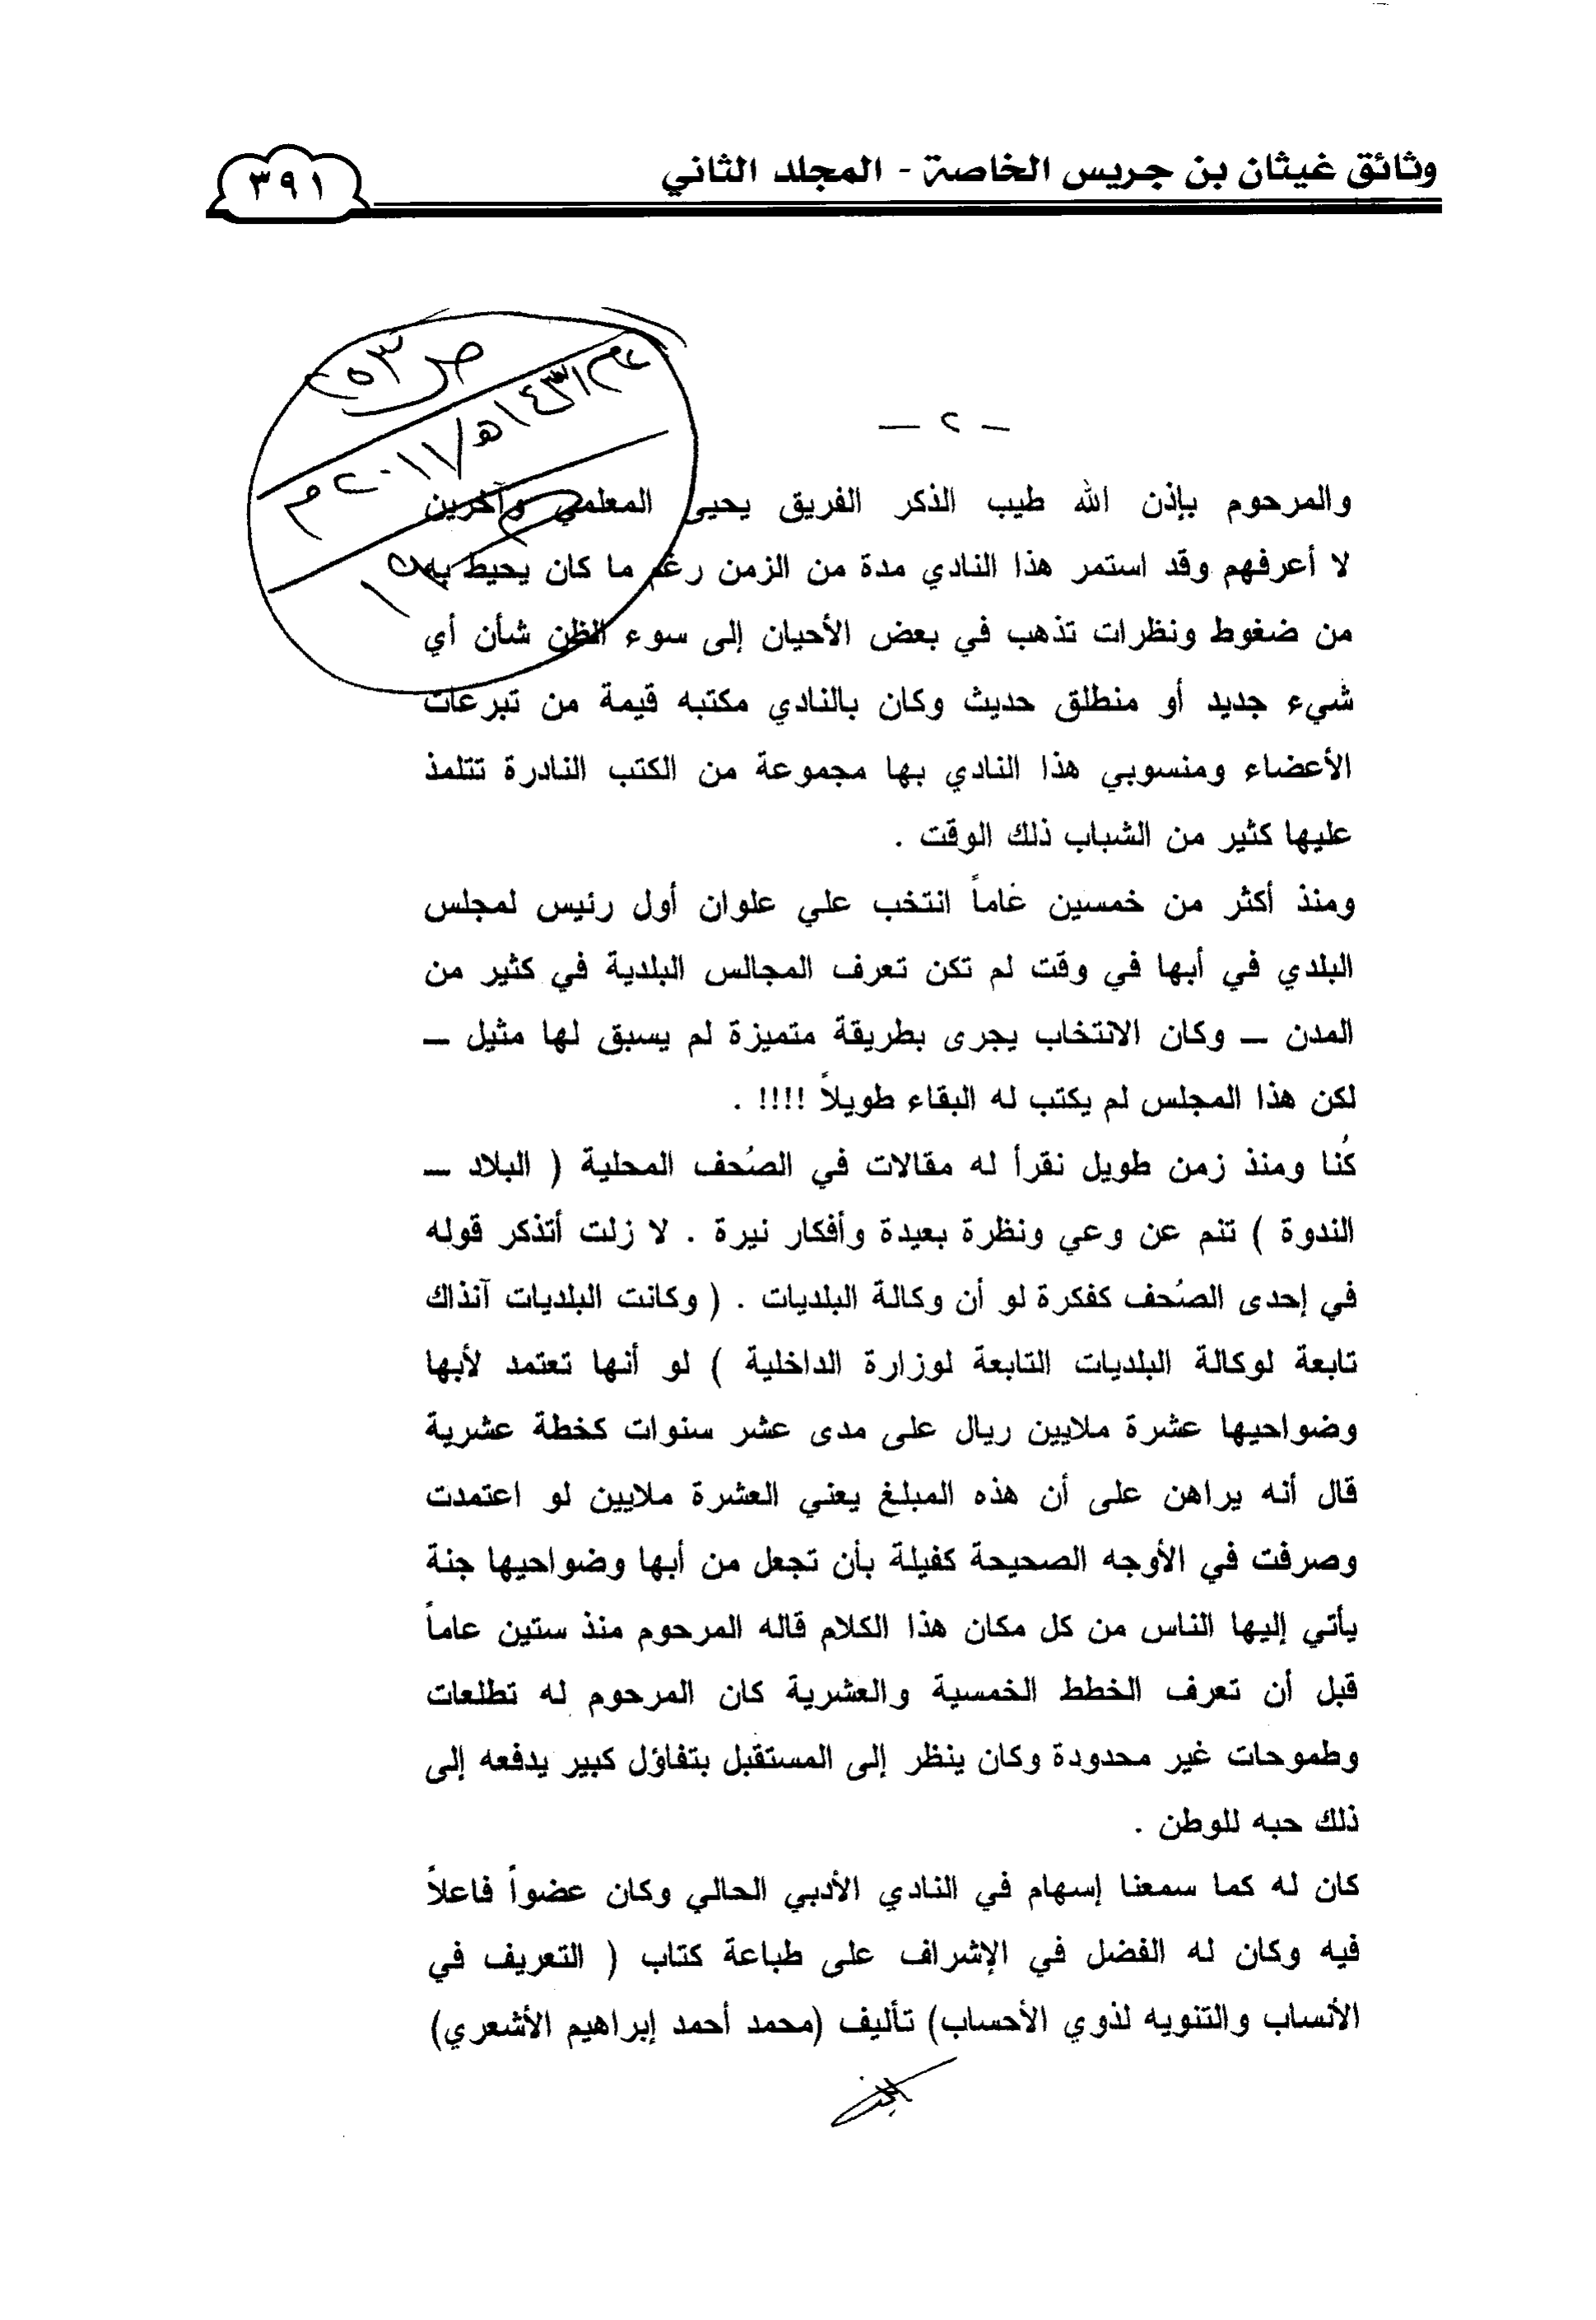 وثائق غيثان بن جريس الخاصة - المجلد الثاني
٣٩١
ص ٢٥٣
١٤٣١هـ/٢٠١١م
— ٢ —
والمرحوم بإذن الله طيب الذكر الفريق يحيى المعلمي وآخرين
لا أعرفهم وقد استمر هذا النادي مدة من الزمن رغم ما كان يحيط به
من ضغوط ونظرات تذهب في بعض الأحيان إلى سوء الظن شأن أي
شيء جديد أو منطلق حديث وكان بالنادي مكتبه قيمة من تبرعات
الأعضاء ومنسوبي هذا النادي بها مجموعة من الكتب النادرة تتلمذ
عليها كثير من الشباب ذلك الوقت .
ومنذ أكثر من خمسين عاماً انتخب علي علوان أول رئيس لمجلس
البلدي في أبها في وقت لم تكن تعرف المجالس البلدية في كثير من
المدن – وكان الانتخاب يجرى بطريقة متميزة لم يسبق لها مثيل –
لكن هذا المجلس لم يكتب له البقاء طويلاً !!!! .
كُنا ومنذ زمن طويل نقرأ له مقالات في الصُحف المحلية ( البلاد –
الندوة ) تنم عن وعي ونظرة بعيدة وأفكار نيرة . لا زلت أتذكر قوله
في إحدى الصُحف كفكرة لو أن وكالة البلديات . ( وكانت البلديات آنذاك
تابعة لوكالة البلديات التابعة لوزارة الداخلية ) لو أنها تعتمد لأبها
وضواحيها عشرة ملايين ريال على مدى عشر سنوات كخطة عشرية
قال أنه يراهن على أن هذه المبلغ يعني العشرة ملايين لو اعتمدت
وصرفت في الأوجه الصحيحة كفيلة بأن تجعل من أبها وضواحيها جنة
يأتي إليها الناس من كل مكان هذا الكلام قاله المرحوم منذ ستين عاماً
قبل أن تعرف الخطط الخمسية والعشرية كان المرحوم له تطلعات
وطموحات غير محدودة وكان ينظر إلى المستقبل بتفاؤل كبير يدفعه إلى
ذلك حبه للوطن .
كان له كما سمعنا إسهام في النادي الأدبي الحالي وكان عضواً فاعلاً
فيه وكان له الفضل في الإشراف على طباعة كتاب ( التعريف في
الأنساب والتنويه لذوي الأحساب) تأليف (محمد أحمد إبراهيم الأشعري)